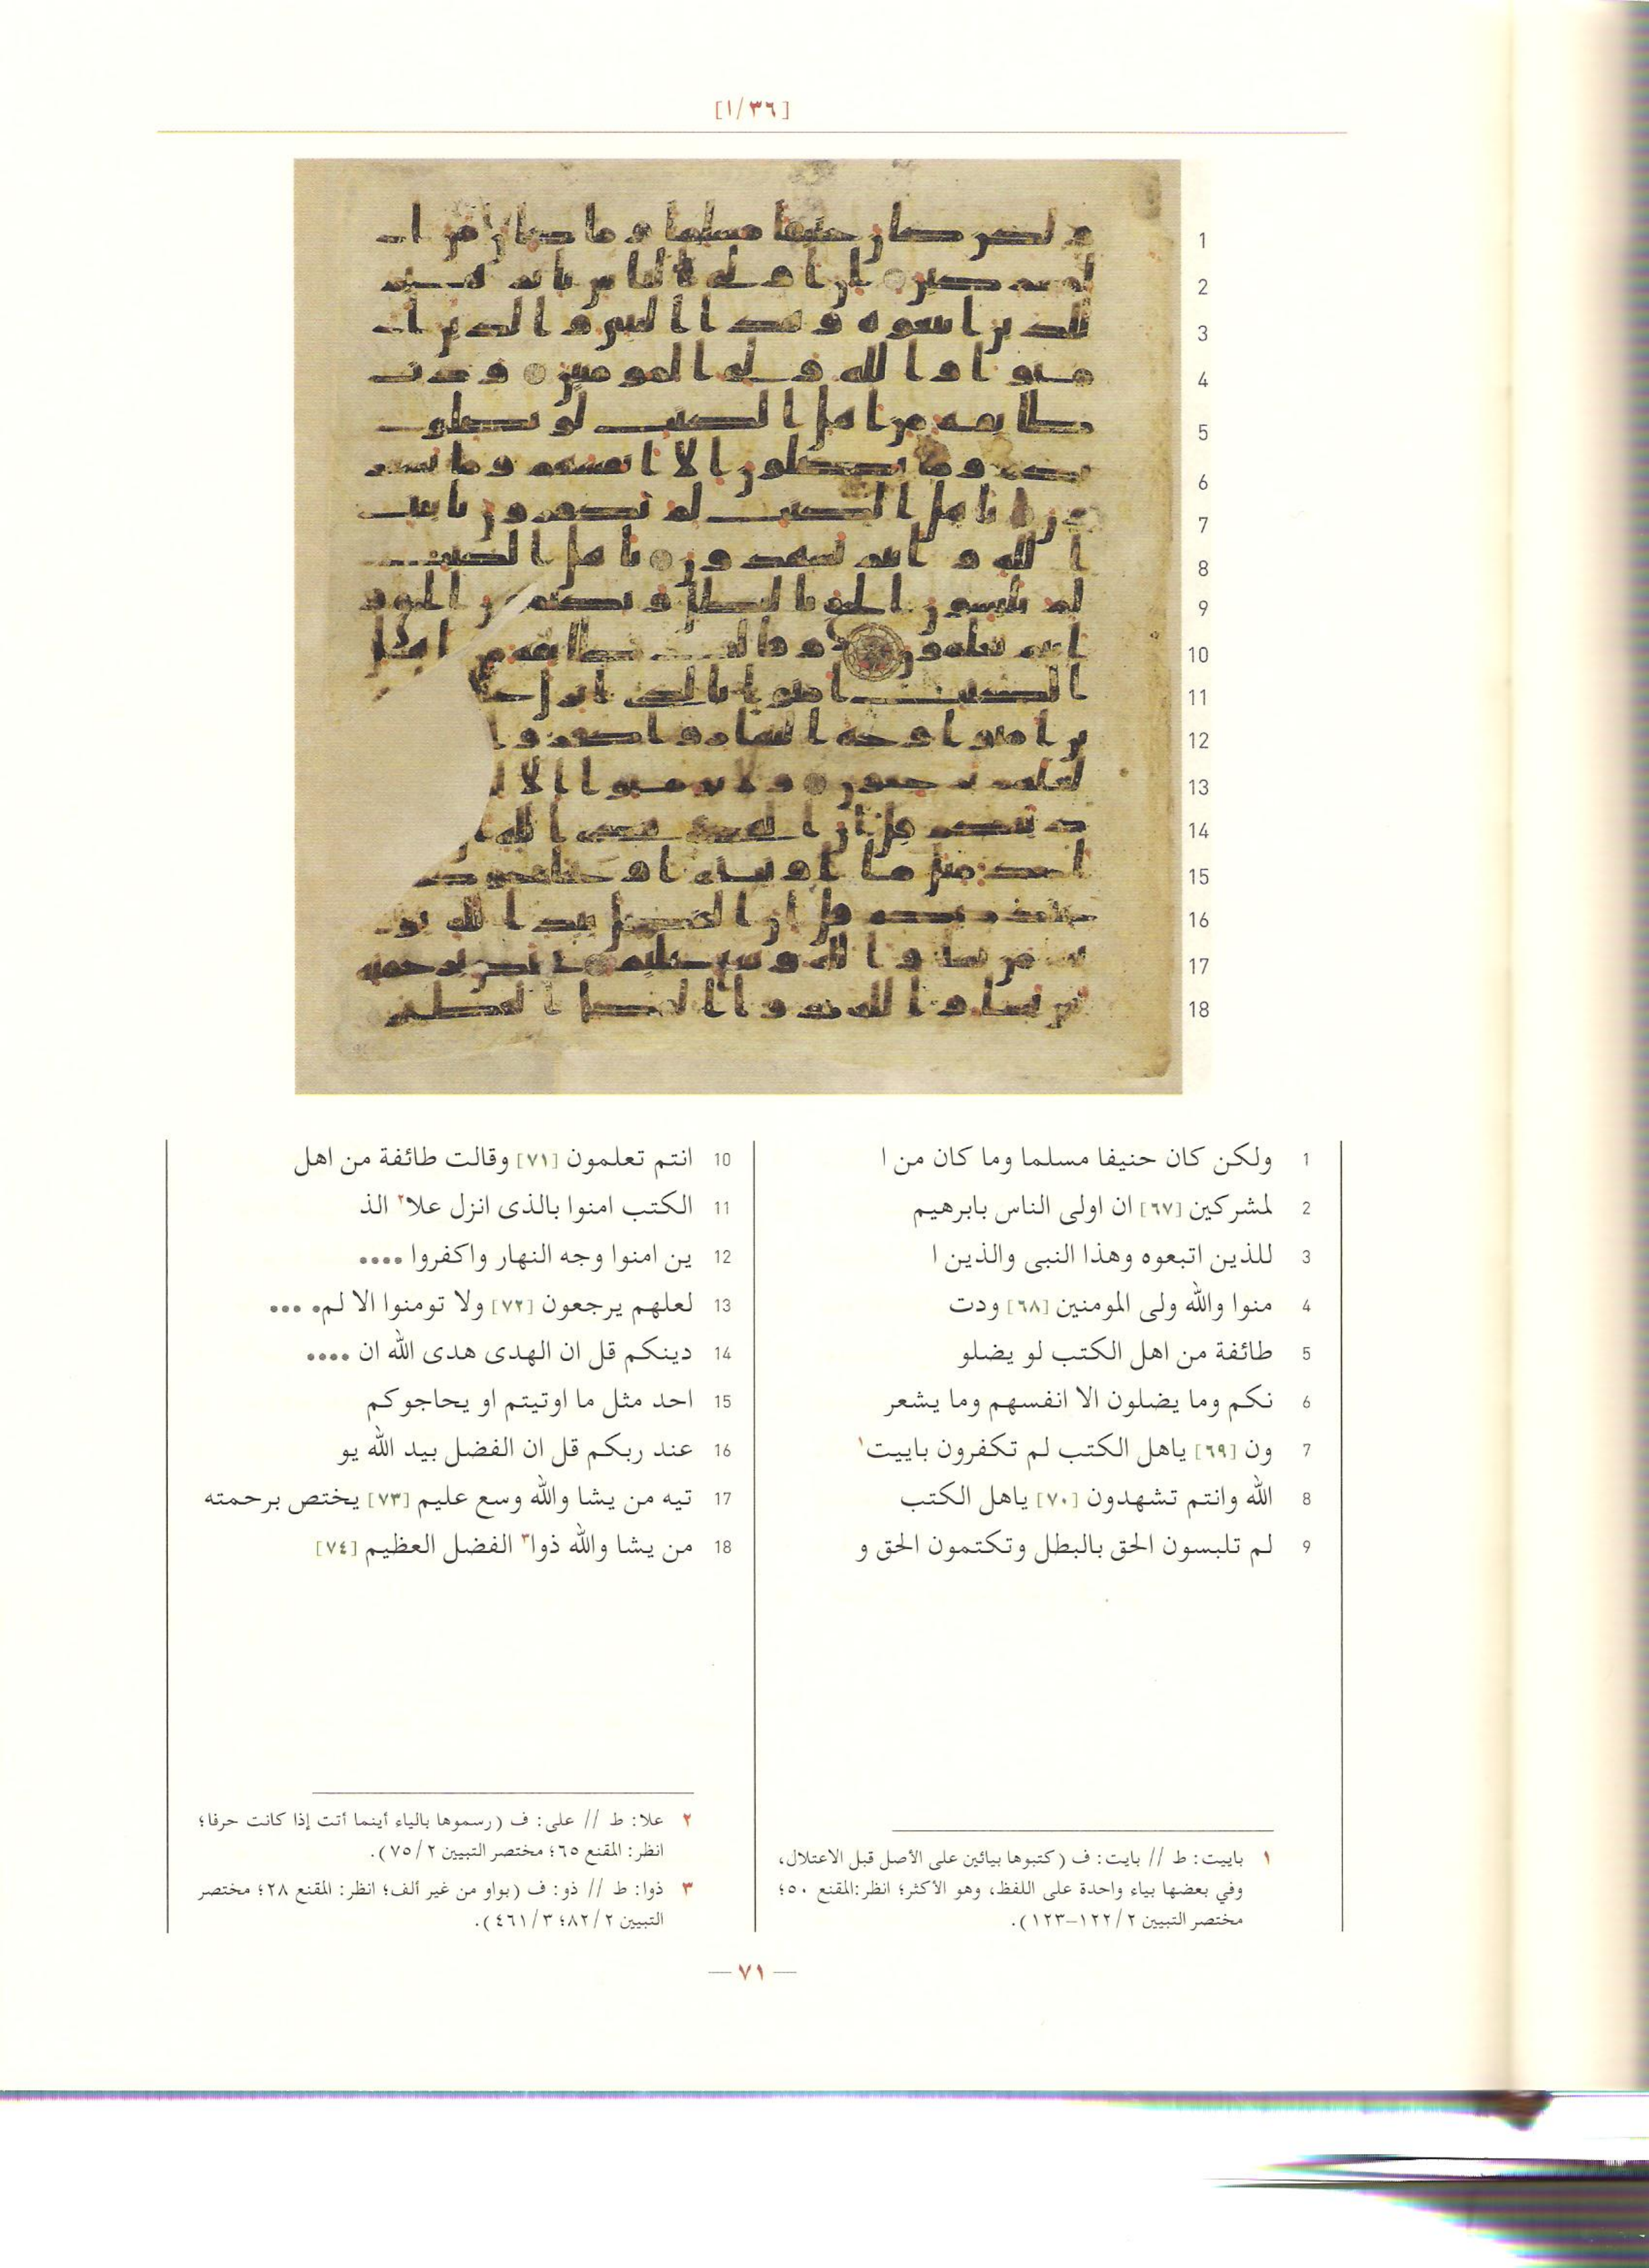 [١/٣٦]
1 ولكن كان حنيفا مسلما وما كان من ا
2 لمشركين [٦٧] ان اولى الناس بابرهيم
3 للذين اتبعوه وهذا النبى والذين ا
4 منوا والله ولى المومنين [٦٨] ودت
5 طائفة من اهل الكتب لو يضلو
6 نكم وما يضلون الا انفسهم وما يشعر
7 ون [٦٩] ياهل الكتب لم تكفرون باييت١
8 الله وانتم تشهدون [٧٠] ياهل الكتب
9 لم تلبسون الحق بالبطل وتكتمون الحق و
10 انتم تعلمون [٧١] وقالت طائفة من اهل
11 الكتب امنوا بالذى انزل علا٢ الذ
12 ين امنوا وجه النهار واكفروا ••••
13 لعلهم يرجعون [٧٢] ولا تومنوا الا لم• •••
14 دينكم قل ان الهدى هدى الله ان ••••
15 احد مثل ما اوتيتم او يحاجوكم
16 عند ربكم قل ان الفضل بيد الله يو
17 تيه من يشا والله وسع عليم [٧٣] يختص برحمته
18 من يشا والله ذوا٣ الفضل العظيم [٧٤]
١ باييت: ط // بايت: ف (كتبوها بيائين على الأصل قبل الاعتلال،
وفي بعضها بياء واحدة على اللفظ، وهو الأكثر؛ انظر:المقنع ٥٠؛
مختصر التبيين ١٢٢/٢–١٢٣).
٢ علا: ط // على: ف (رسموها بالياء أينما أتت إذا كانت حرفا؛
انظر: المقنع ٦٥؛ مختصر التبيين ٧٥/٢).
٣ ذوا: ط // ذو: ف (بواو من غير ألف؛ انظر: المقنع ٢٨؛ مختصر
التبيين ٨٢/٢؛ ٤٦١/٣).
— ٧١ —